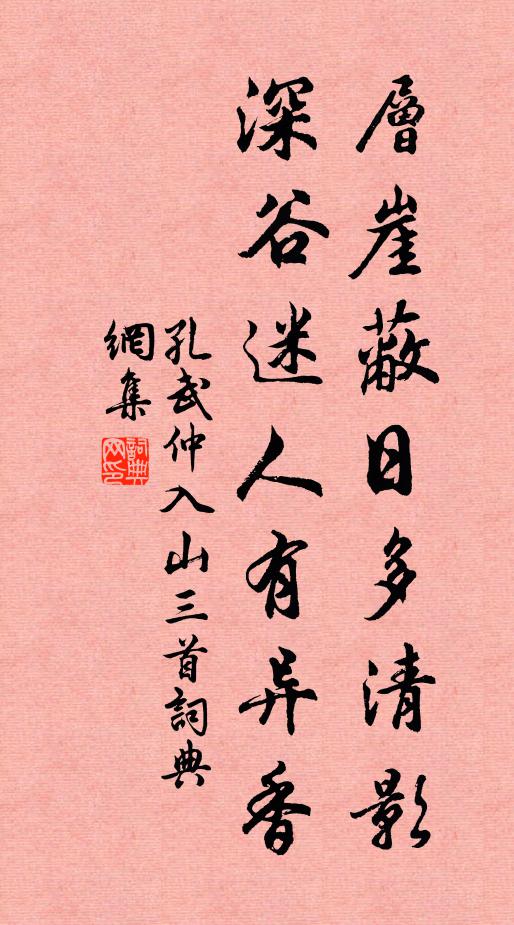 層崖蔽日多清影
深谷迷人有异香
孔武仲入山三首詞典
網集
詞典
网印